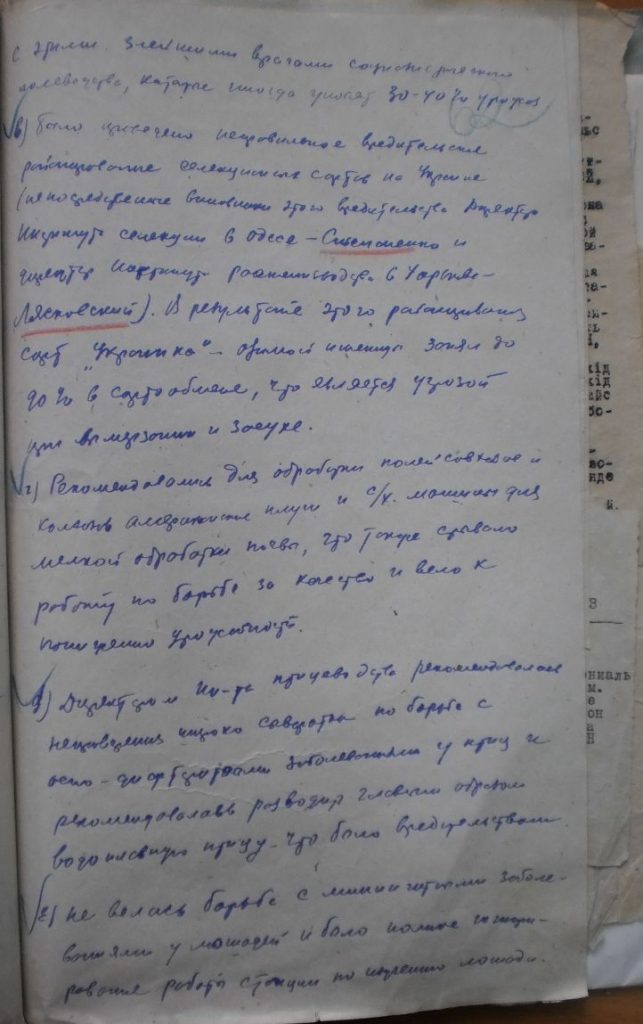 с этими злейшими врагами социалистического
полеводства, которые иногда уносят 30-40% урожая
в) было проведено неправильное вредительское
районирование селекционных сортов на Украине
(непосредственные виновники этого вредительства Директор
Института селекции в Одессе – и
директор Института растениеводства в Харькове –
Лясковский). В результате этого районирования
сорт "Украинка" – озимой пшеницы занял до
90% в сортообмене, что является угрозой
при вымерзании и засухе.
г) Рекомендовались для обработки полей совхозов и
колхозов американские плуги и с/х. машины для
мелкой обработки почвы, что также срывало
работу по борьбе за качество и вело к
понижению урожайности.
д) Директором Ин-та птицеводства рекомендовалось
широко по борьбе с
оспо-дифтеритными заболеваниями у птиц и
рекомендовалось разводить главным образом
водоплавную птицу – что было вредительством
е) не велась борьба с заболе-
ваниями у лошадей и было полное игнори-
рование работы станции по изучению лошади.
она
ой
хід
хід
айс
бо-
во-
нде
й.
В
ониаль
м.
е
он
а
Н